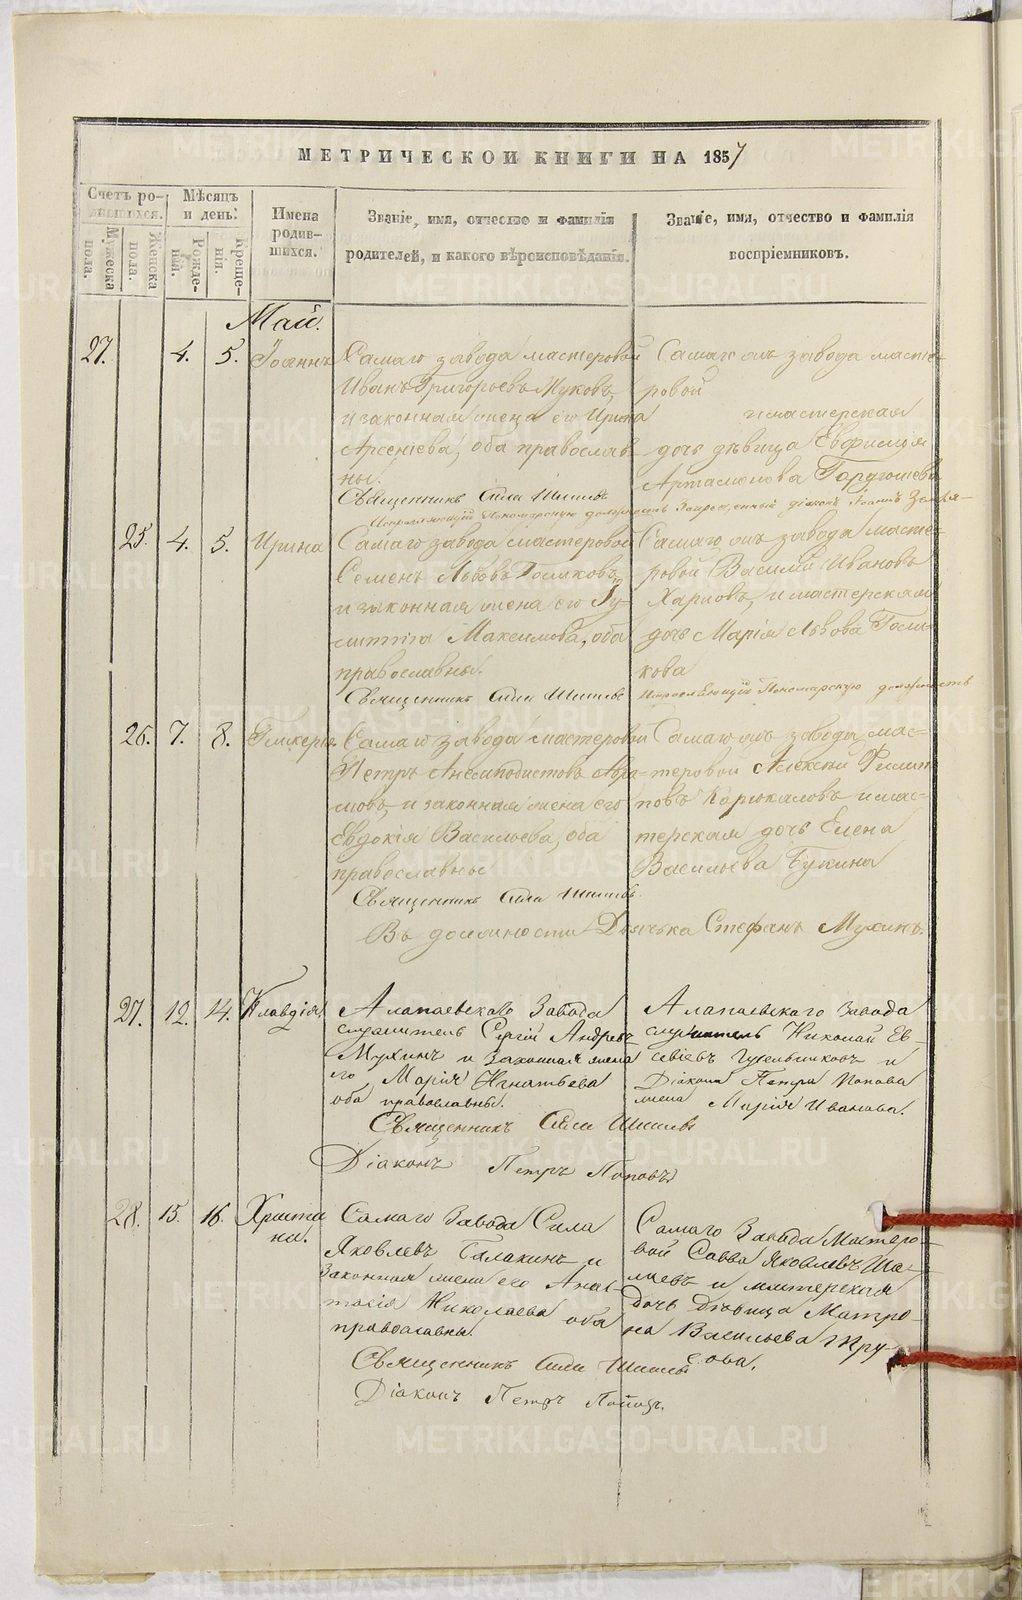 МЕТРИЧЕСКОЙ КНИГИ НА 1857
Счетъ ро-
дившихся.
Мужеска
пола.
Женска
пола.
Мѣсяцъ
и день.
Рожде-
нія.
Креще-
нія.
Имена
родив-
шихся.
Званіе, имя, отчество и фамилія
родителей, и какого вѣроисповѣданія.
Званіе, имя, отчество и фамилія
воспріемниковъ.
Май.
27. 4. 5. Іоаннъ
Самаго завода мастеровой
Иванъ Григорьевъ
и законная жена его Ирина
Арсеніева, оба православ-
ны.
Священникъ Сила
Самаго жъ завода масте-
ровой
и мастерская
дочь дѣвица Евфимія
Артамонова
Исправляющій Пономарскую должность діаконъ Іоаннъ
25. 4. 5. Ирина
Самаго завода мастеровой
Семенъ Львовъ
и законная жена его Гу-
Максимова, оба
православны.
Священникъ Сила
Самаго жъ завода масте-
ровой Василій Ивановъ
и мастерская
дочь Марія Львова
кова
Исправляющій Пономарскую должность
26. 7. 8. Гликерія.
Самаго завода мастеровой
Петръ Анемподистовъ Абра-
мовъ и законная жена его
Евдокія Васильева, оба
православны
Священникъ Сила
Самаго жъ завода мас-
теровой Алексѣй Филип-
повъ и мас-
терская дочь Елена
Васильева Букина
Въ должности Дьячька Стефанъ Мухинъ.
27. 12. 14. Клавдія.
Алапаевскаго Завода
служитель Сергій Андреевъ
Мухинъ и Законная жена
его Марія Игнатьева
оба православны.
Священникъ Сила
Діаконъ Петръ Поповъ
Алапаевскаго Завода
служитель Николай Ев-
севіевъ и
Діакона Петра Попова
жена Марія Иванова.
28. 15. 16. Христи
на.
Самаго Завода Сила
Яковлевъ и
Законная жена его Анас-
тасія Николаева оба
православны.
Священникъ Сила
Діаконъ Петръ Поповъ.
Самаго Завода Мастеро-
вой Савва Яковлевъ
и мастерская
дочь Дѣвица Матро-
на Васильева Тру-
сова.
METRIKI.GASO-URAL.RU